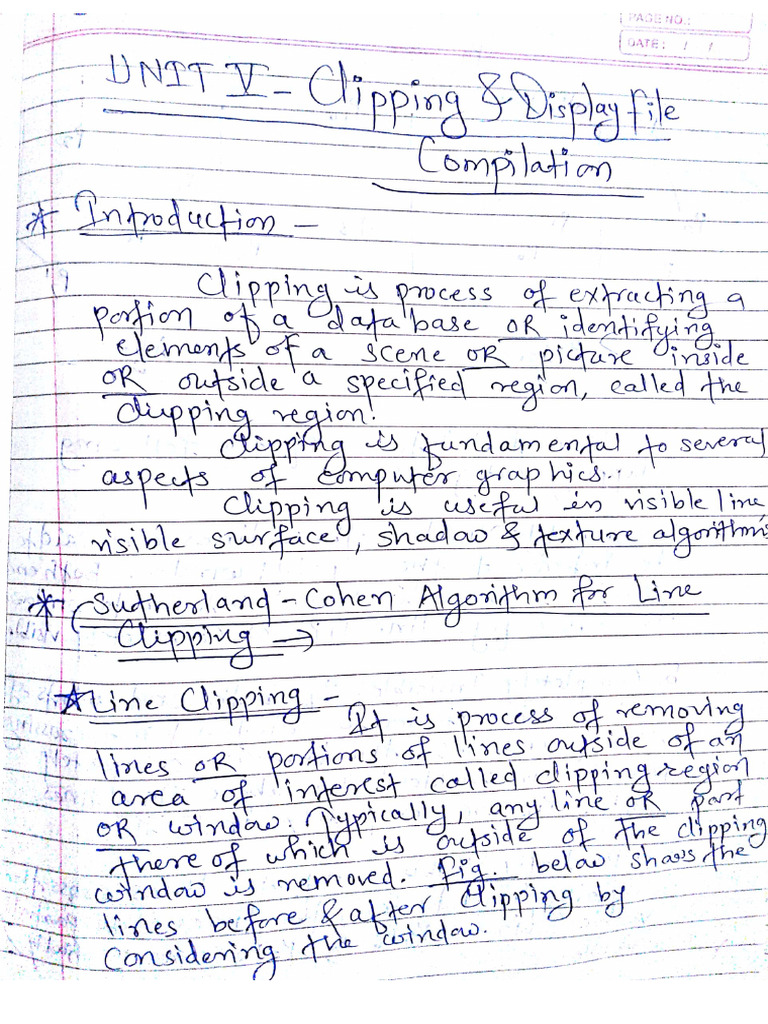 PAGE NO.:
DATE: / /
UNIT V - Clipping & Display file
Compilation
* Introduction -
Clipping is process of extracting a
portion of a database OR identifying
elements of a scene OR picture inside
OR outside a specified region, called the
clipping region.
Clipping is fundamental to several
aspects of computer graphics.
Clipping is useful in visible line,
visible surface, shadow & texture algorithms
* Sutherland-Cohen Algorithm for Line
Clipping →
* Line Clipping -
It is process of removing
lines OR portions of lines outside of an
area of interest called clipping region
OR window. Typically, any line OR part
there of which is outside of the clipping
window is removed. fig. below shows the
lines before & after clipping by
considering the window.